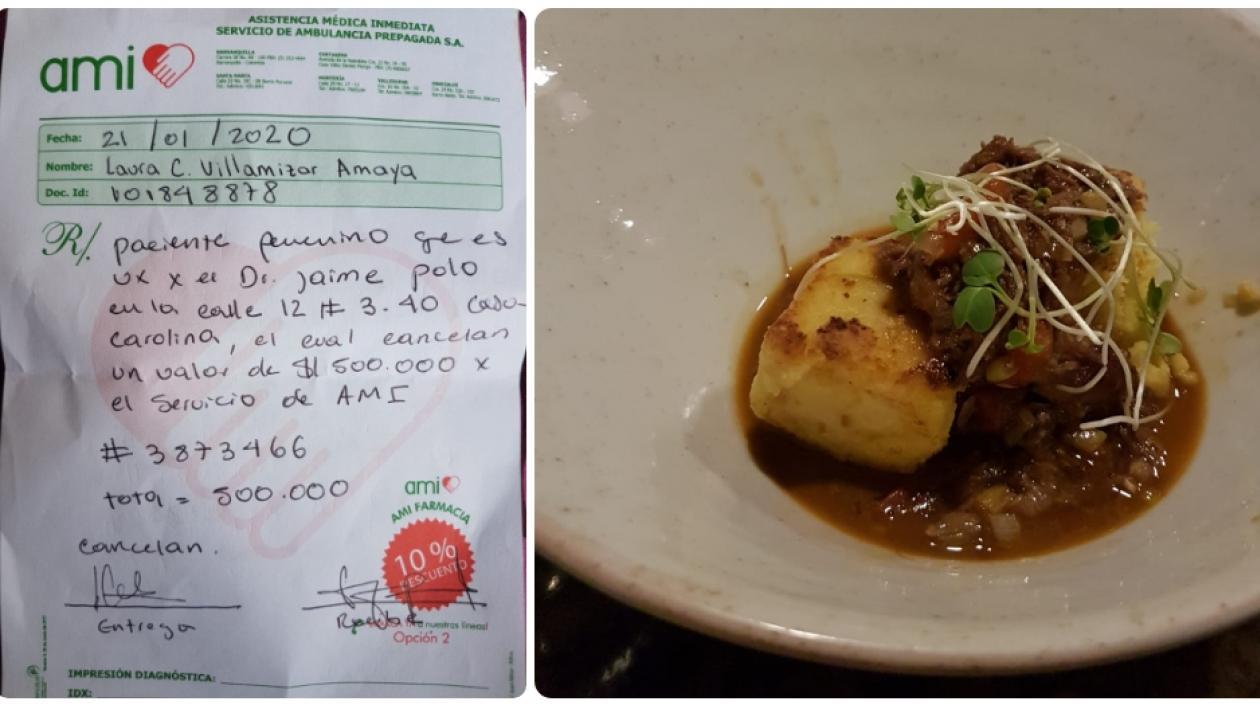 ASISTENCIA MÉDICA INMEDIATA
SERVICIO DE AMBULANCIA PREPAGADA S.A.
ami
BARRANQUILLA
CARTAGENA
SANTA MARTA
MONTERÍA
VALLEDUPAR
SINCELEJO
Fecha: 21 / 01 / 2020
Nombre: Laura C. Villamizar Amaya
Doc. Id: 101848878
R/. paciente femenino qe es
vx x el Dr. Jaime polo
en la calle 12 # 3.40 Casa
Carolina, el cual cancelan
un valor de $ 500.000 x
el Servicio de AMI
# 3873466
total = 500.000
cancelan.
ami
AMI FARMACIA
10%
DESCUENTO
Entrega
Recibe
a nuestras líneas!
Opción 2
IMPRESIÓN DIAGNÓSTICA:
IDX: